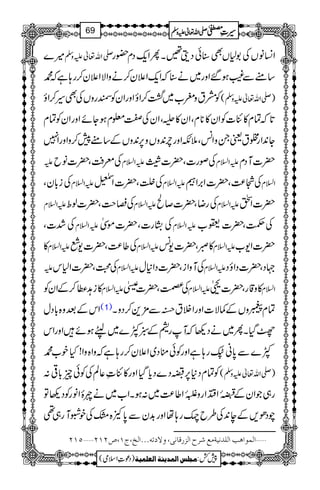 سیرتِ مصطفیٰ صلی اللہ تعالیٰ علیہ وسلم 69
انسانوں کی بولیاں بھی سنائی دیتی تھیں۔ پھر ایک دم حضور صلی اللہ تعالیٰ علیہ وسلم میرے
سامنے سے غیب ہو گئے اور میں نے سنا کہ ایک اعلان کرنے والا اعلان کر رہا ہے کہ محمد
(صلی اللہ تعالیٰ علیہ وسلم) کو مشرق و مغرب میں گشت کراؤ اور ان کو سمندروں کی بھی سیر کراؤ
تاکہ تمام کائنات کو ان کا نام، ان کا حلیہ، ان کی صفت معلوم ہو جائے اور ان کو تمام
جاندار مخلوق یعنی جن و انس، ملائکہ اور چرندوں و پرندوں کے سامنے پیش کرو اور انہیں
حضرت آدم علیہ السلام کی صورت، حضرت شیث علیہ السلام کی معرفت، حضرت نوح علیہ
السلام کی شجاعت، حضرت ابراہیم علیہ السلام کی خلت، حضرت اسمٰعیل علیہ السلام کی زبان،
حضرت اسحٰق علیہ السلام کی رضا، حضرت صالح علیہ السلام کی فصاحت، حضرت لوط علیہ السلام
کی حکمت، حضرت یعقوب علیہ السلام کی بشارت، حضرت موسیٰ علیہ السلام کی شدت،
حضرت ایوب علیہ السلام کا صبر، حضرت یونس علیہ السلام کی طاعت، حضرت یوشع علیہ السلام کا
جہاد، حضرت داؤد علیہ السلام کی آواز، حضرت دانیال علیہ السلام کی محبت، حضرت الیاس علیہ
السلام کا وقار، حضرت یحیٰی علیہ السلام کی عصمت، حضرت عیسیٰ علیہ السلام کا زہد عطا کر کے ان کو
تمام پیغمبروں کے کمالات اور اخلاق حسنہ سے مزین کر دو۔(1) اس کے بعد وہ بادل
چھٹ گیا۔ پھر میں نے دیکھا کہ آپ ریشم کے سبز کپڑے میں لپٹے ہوئے ہیں اور اس
کپڑے سے پانی ٹپک رہا ہے اور کوئی منادی اعلان کر رہا ہے کہ واہ وا! کیا خوب محمد
(صلی اللہ تعالیٰ علیہ وسلم) کو تمام دنیا پر قبضہ دے دیا گیا اور کائناتِ عالم کی کوئی چیز باقی نہ
رہی جو ان کے قبضۂ اقتدار و غلبۂ اطاعت میں نہ ہو۔ اب میں نے چہرۂ انور کو دیکھا تو
چودھویں کے چاند کی طرح چمک رہا تھا اور بدن سے پاکیزہ مشک کی خوشبو آ رہی تھی
......المواهب اللدنیة مع شرح الزرقانی، ولادته...الخ، ج۱، ص۲۱۲......۲۱۵
پیش کش: مجلس المدینة العلمیة (دعوتِ اسلامی)